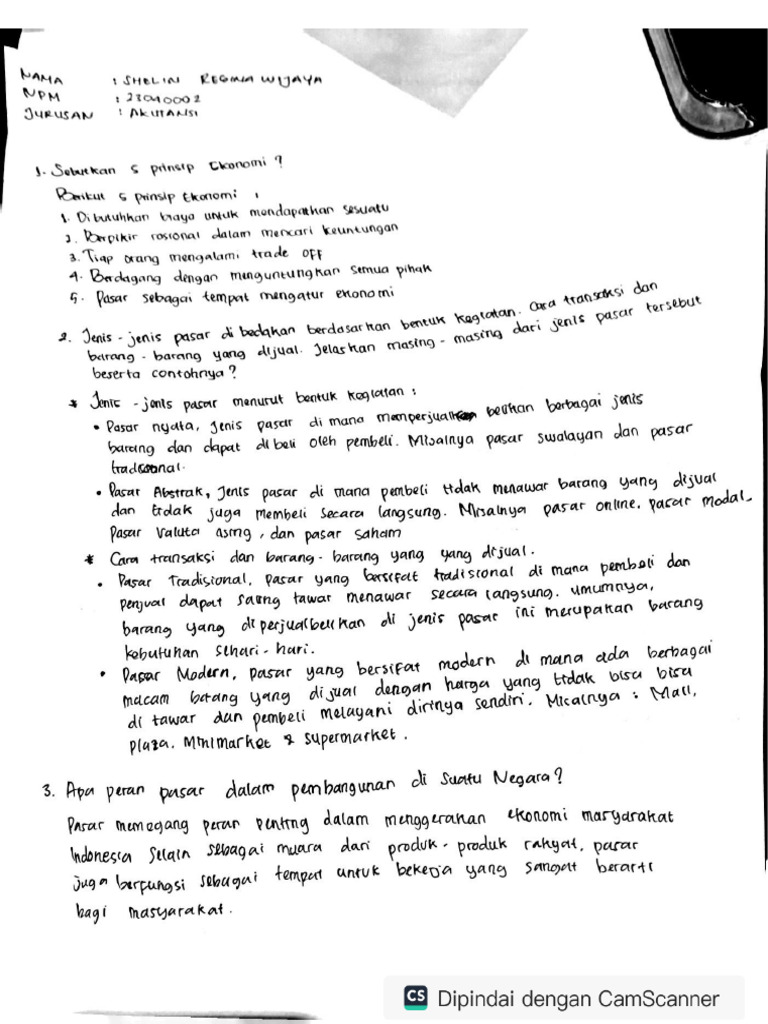 NAMA : SHELIN REGINA WIJAYA
NPM : 23040002
JURUSAN : AKUTANSI
1. Sebutkan 5 prinsip Ekonomi ?
Berikut 5 prinsip Ekonomi :
1. Dibutuhkan biaya untuk mendapatkan sesuatu
2. Berpikir rasional dalam mencari keuntungan
3. Tiap orang mengalami trade OFF
4. Berdagang dengan menguntungkan semua pihak
5. Pasar sebagai tempat mengatur ekonomi
2. Jenis - jenis pasar di bedakan berdasarkan bentuk kegiatan. Cara transaksi dan
barang - barang yang dijual. Jelaskan masing - masing dari jenis pasar tersebut
beserta contohnya ?
* Jenis - jenis pasar menurut bentuk kegiatan :
• Pasar nyata, jenis pasar di mana memperjual belikan berbagai jenis
barang dan dapat di beli oleh pembeli. Misalnya pasar swalayan dan pasar
tradisional.
• Pasar Abstrak, jenis pasar di mana pembeli tidak menawar barang yang dijual
dan tidak juga membeli secara langsung. Misalnya pasar online. pasar modal.
Pasar Valuta asing, dan pasar saham
* Cara transaksi dan barang - barang yang yang dijual.
• Pasar Tradisional, pasar yang bersifat tradisional di mana pembeli dan
penjual dapat saling tawar menawar secara langsung. umumnya,
barang yang diperjualbelikan di jenis pasar ini merupakan barang
kebutuhan sehari - hari.
• Pasar Modern, pasar yang bersifat modern di mana ada berbagai
macam barang yang dijual dengan harga yang tidak bisa bisa
di tawar dan pembeli melayani dirinya sendiri. Misalnya : Mall,
plaza. Minimarket & supermarket.
3. Apa peran pasar dalam pembangunan di suatu Negara ?
Pasar memegang peran penting dalam menggerakan ekonomi masyarakat
Indonesia selain sebagai muara dari produk - produk rakyat, pasar
juga berfungsi sebagai tempat untuk bekerja yang sangat berarti
bagi masyarakat.
CS Dipindai dengan CamScanner